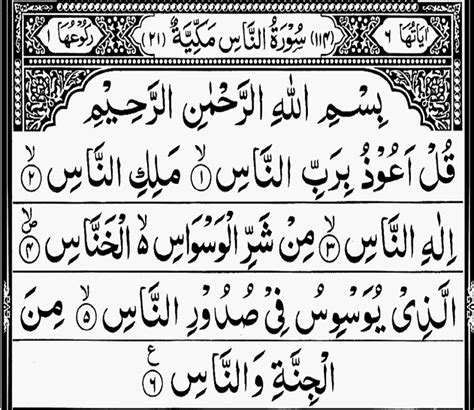 اٰيَاتُهَا ٦ (١١٤) سُوْرَةُ النَّاسِ مَكِّيَّةٌ (٢١) رُكُوْعُهَا ١
بِسْمِ اللّٰهِ الرَّحْمٰنِ الرَّحِيْمِ
قُلْ اَعُوْذُ بِرَبِّ النَّاسِ ۙ﴿۱﴾ مَلِكِ النَّاسِ ۙ﴿۲﴾
اِلٰهِ النَّاسِ ۙ﴿۳﴾ مِنْ شَرِّ الْوَسْوَاسِ ۙ۬ الْخَنَّاسِ ۪ۙ﴿۴﴾
الَّذِیْ یُوَسْوِسُ فِیْ صُدُوْرِ النَّاسِ ۙ﴿۵﴾ مِنَ
الْجِنَّةِ وَ النَّاسِ ﴿۶﴾ ع